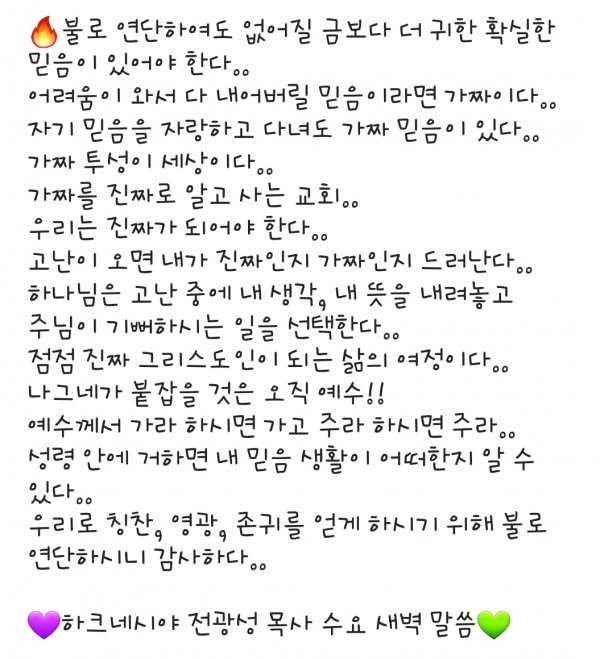 🔥불로 연단하여도 없어질 금보다 더 귀한 확실한
믿음이 있어야 한다..
어려움이 와서 다 내어버릴 믿음이라면 가짜이다..
자기 믿음을 자랑하고 다녀도 가짜 믿음이 있다..
가짜 투성이 세상이다..
가짜를 진짜로 알고 사는 교회..
우리는 진짜가 되어야 한다..
고난이 오면 내가 진짜인지 가짜인지 드러난다..
하나님은 고난 중에 내 생각, 내 뜻을 내려놓고
주님이 기뻐하시는 일을 선택한다..
점점 진짜 그리스도인이 되는 삶의 여정이다..
나그네가 붙잡을 것은 오직 예수!!
예수께서 가라 하시면 가고 주라 하시면 주라..
성령 안에 거하면 내 믿음 생활이 어떠한지 알 수
있다..
우리로 칭찬, 영광, 존귀를 얻게 하시기 위해 불로
연단하시니 감사하다..
💜하크네시야 전광성 목사 수요 새벽 말씀💚